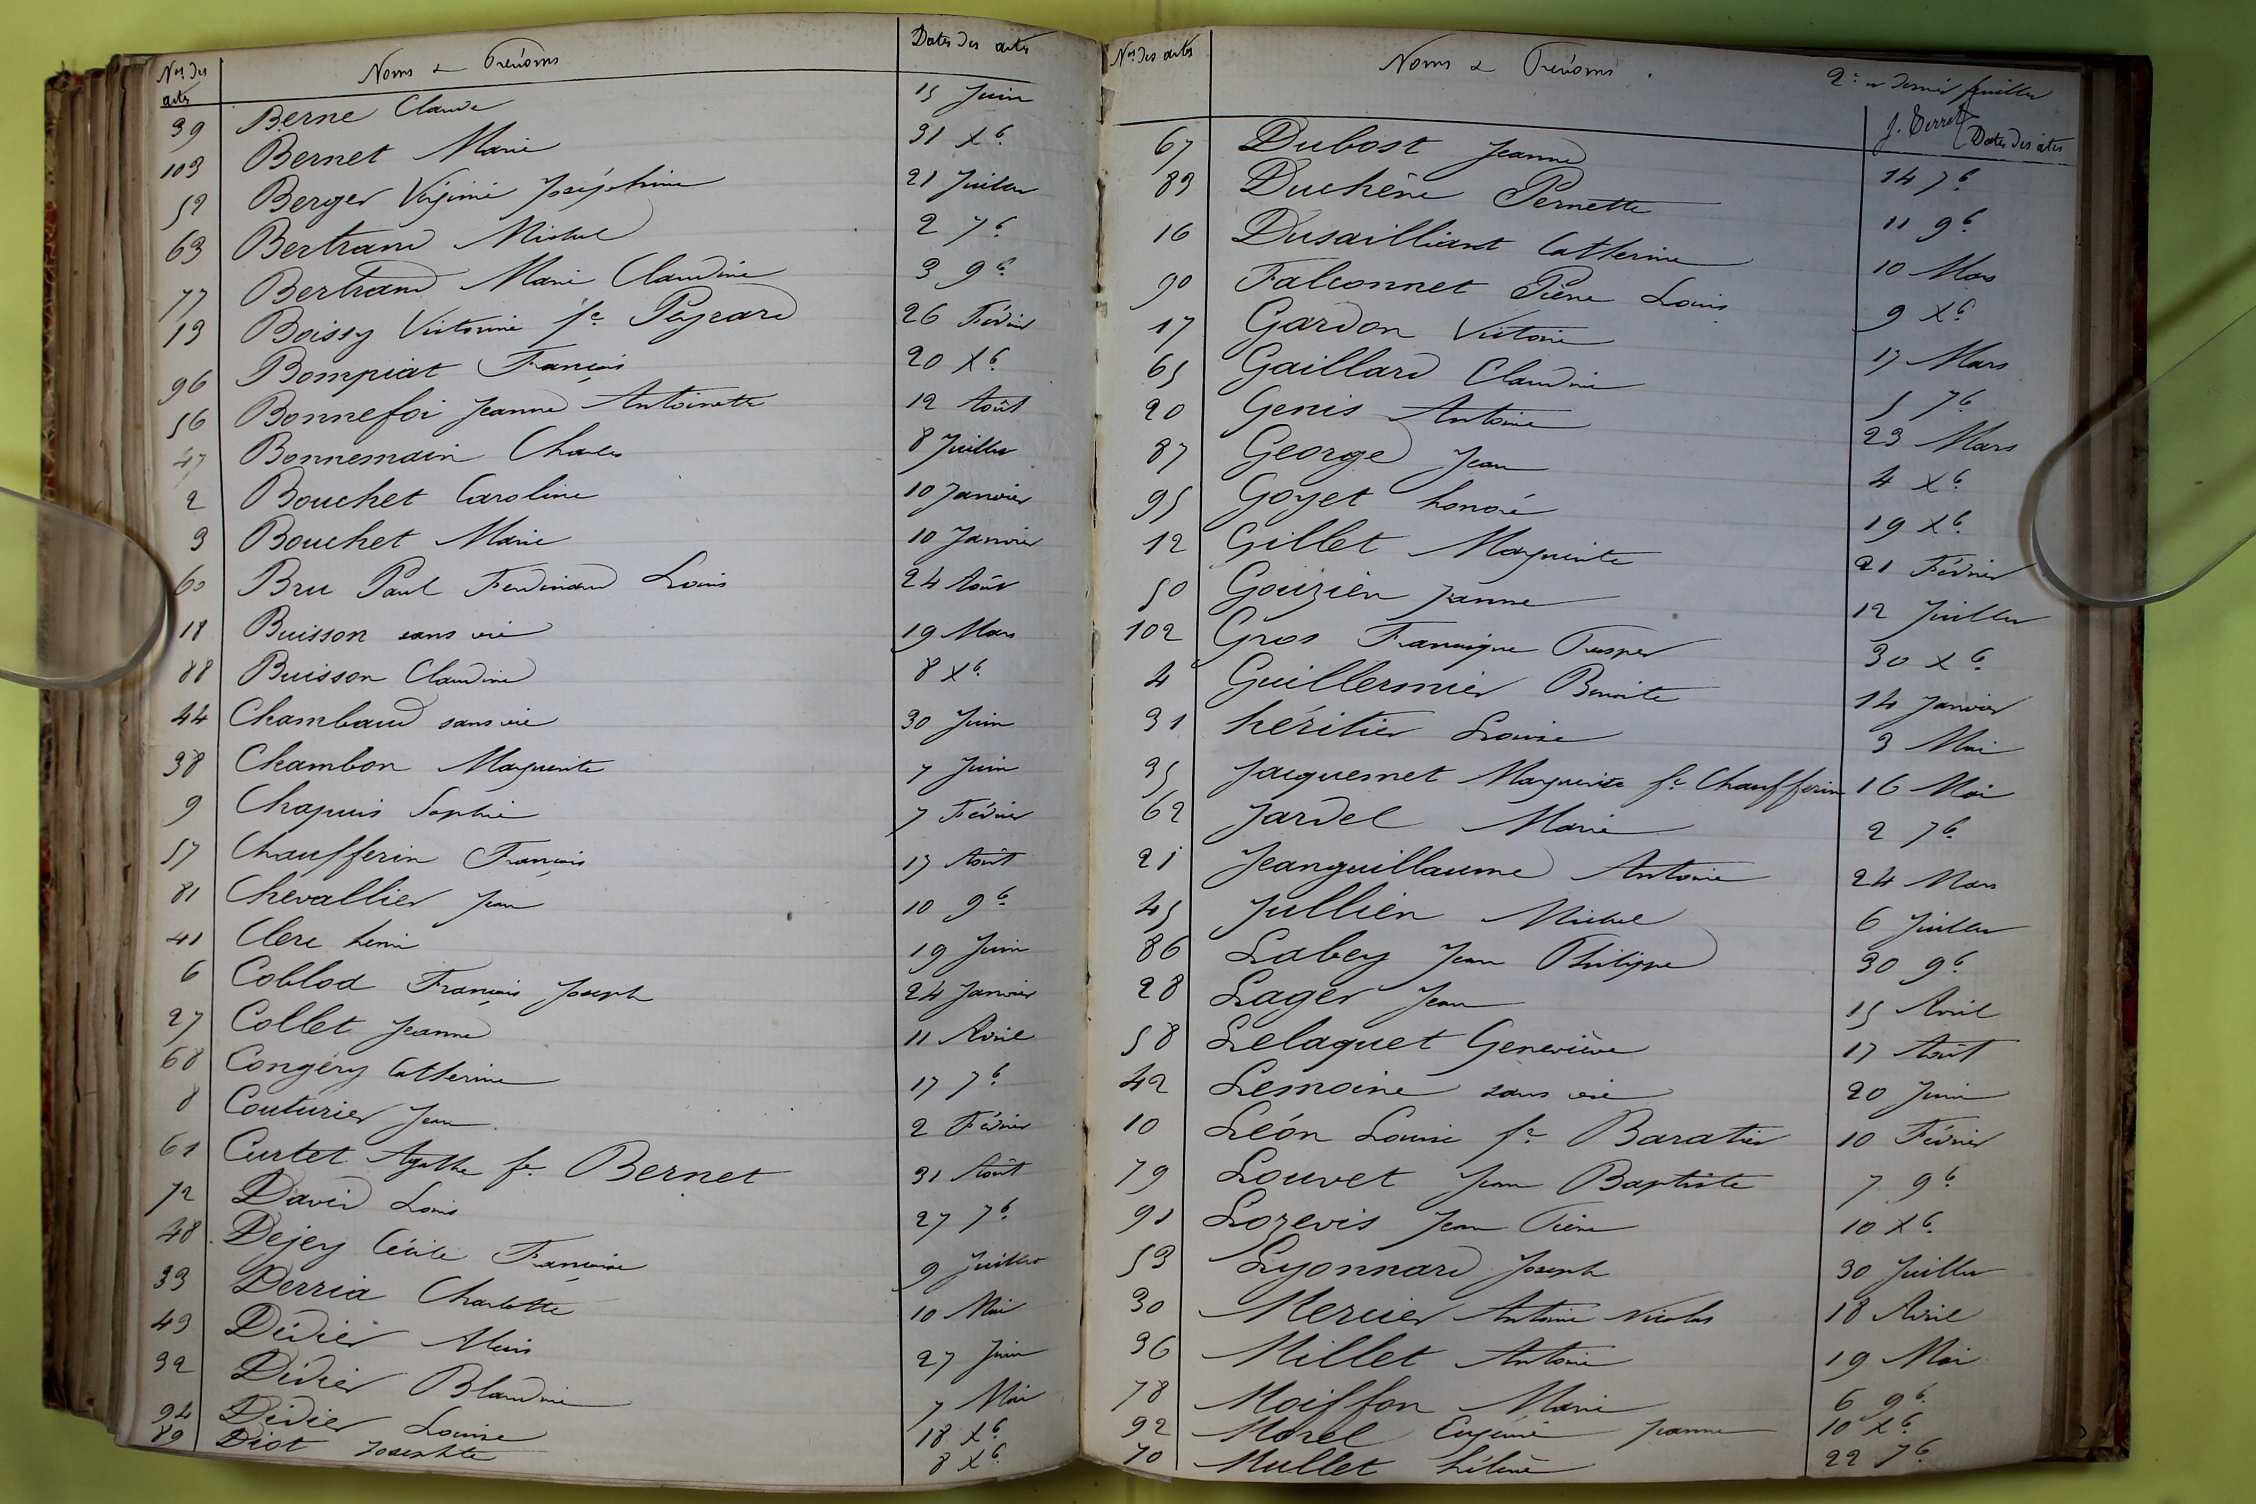 Nos des actes Noms & Prénoms Dates des actes
39 Berne Claude 15 Juin
103 Bernet Marie 31 Xb.
52 Berger Virginie Joséphine 21 Juillet
63 Bertrand Michel 2 7b.
77 Bertrand Marie Claudine 3 9b.
13 Boissy Victorine fe Peyrard 26 Février
96 Bompiat François 20 Xb.
56 Bonnefoi Jeanne Antoinette 12 Août
47 Bonnemain Charles 8 Juillet
2 Bouchet Caroline 10 Janvier
3 Bouchet Marie 10 Janvier
60 Bru Paul Ferdinand Louis 24 Août
18 Buisson sans vie 19 Mars
88 Buisson Claudine 8 Xb.
44 Chambaud sans vie 30 Juin
38 Chambon Marguerite 7 Juin
9 Chapuis Sophie 7 Février
57 Chaufferin François 17 Août
81 Chevallier Jean 10 9b.
41 Clerc henri 19 Juin
6 Coblod François Joseph 24 Janvier
27 Collet Jeanne 11 Avril
68 Congéry Catherine 17 7b.
8 Couturier Jean 2 Février
61 Curtet Agathe fe Bernet 31 Août
72 David Louis 27 7b.
48 Dejey Cécile Françoise 9 Juillet
33 Derria Charlotte 10 Mai
43 Dédier Alexis 27 Juin
32 Dédier Blandine 7 Mai
94 Dédier Louise 18 Xb.
89 Diot Josephte 8 Xb.
Nos des actes Noms & Prénoms 2e et dernier feuillet
J. Perret Dates des actes
67 Dubost Jeanne 14 7b.
83 Duchêne Pernette 11 9b.
16 Dusailliant Catherine 10 Mars
90 Falconnet Pierre Louis 9 Xb.
17 Gardon Victoire 17 Mars
65 Gaillard Claudine 5 7b.
20 Genis Antoine 23 Mars
87 George Jean 4 Xb.
95 Goyet honoré 19 Xb.
12 Gillet Marguerite 21 Février
50 Gouzien Jeanne 12 Juillet
102 Gros Francisque Prosper 30 Xb.
4 Guillermier Benoite 14 Janvier
31 héritier Louise 3 Mai
35 Jacquesnet Marguerite fe Chaufferin 16 Mai
62 Jardel Marie 2 7b.
21 Jeanguillaume Antoine 24 Mars
45 Jullien Michel 6 Juillet
86 Labey Jean Philippe 30 9b.
28 Lager Jean 15 Avril
58 Lelaquet Geneviève 17 Août
42 Lemoine sans vie 20 Juin
10 Léon Louise fe Baratier 10 Février
79 Louvet Jean Baptiste 7 9b.
91 Lozevis Jean Pierre 10 Xb.
53 Lyonnard Joseph 30 Juillet
30 Mercier Antoine Nicolas 18 Avril
36 Millet Antoine 19 Mai
78 Moiffon Marie 6 9b.
92 Morel Eugénie Jeanne 10 Xb.
70 Mullet hélène 22 7b.